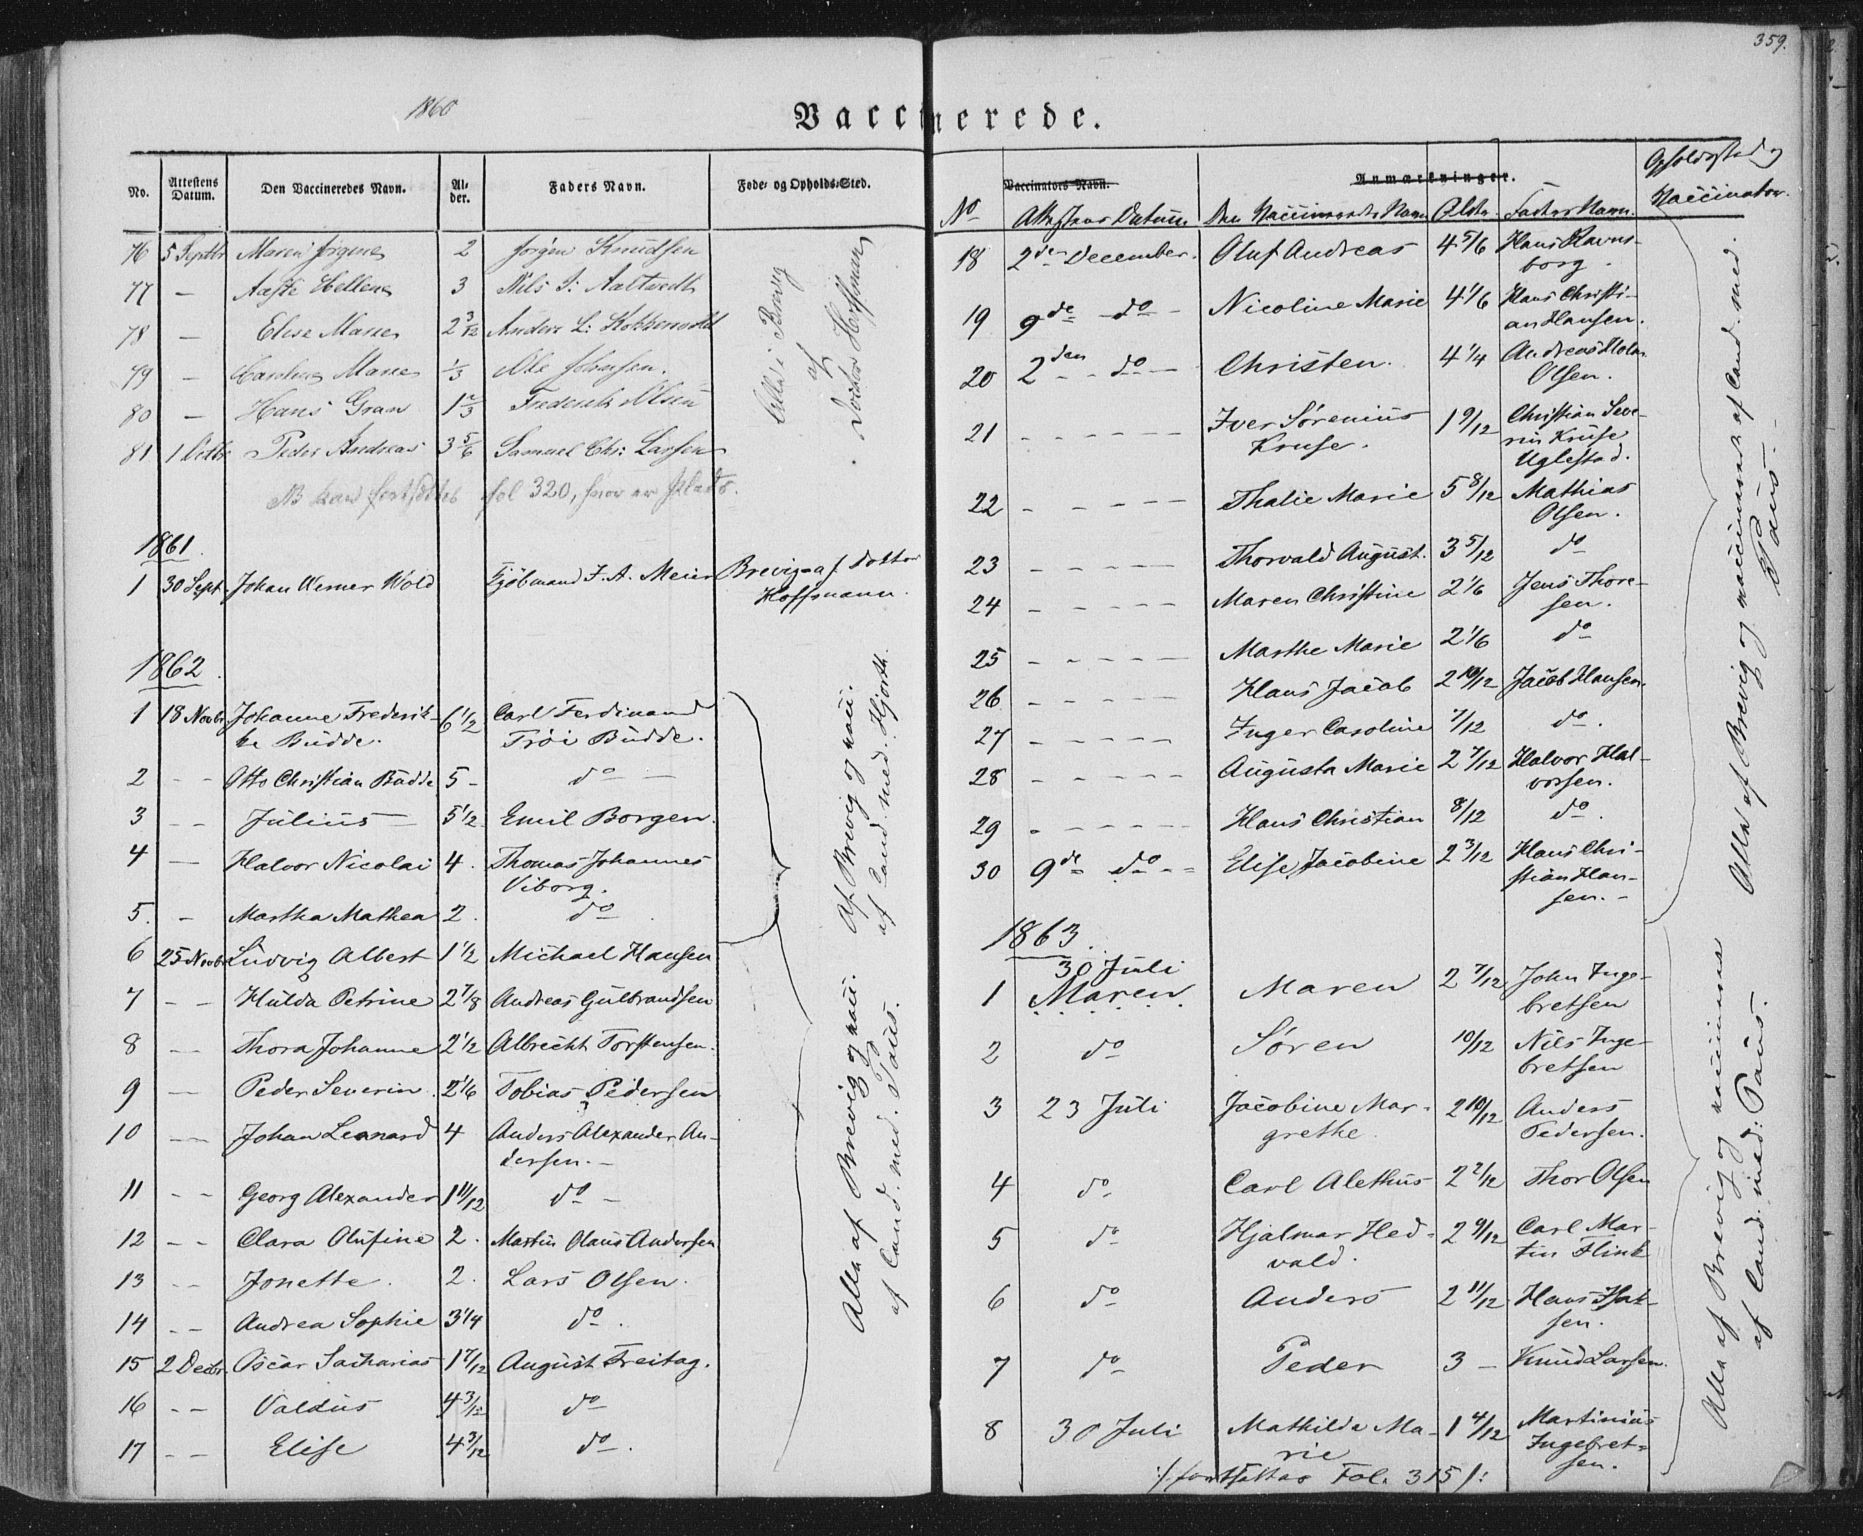 359.
1860
Vaccinerede.
No. Attestens Datum. Den Vaccineredes Navn. Al-der. Faders Navn. Føde- og Opholds-Sted.
76 5 Septbr Maren Jørgine 2 Jørgen Knudsen
77 — Aaste Hellene 3 Nils J: Aaltvedt
78 — Elise Marie 2 3/12 Anders L:
79 — Marie 1/3 Ole Johnsen.
80 — Hans Gran 1 2/3 Frederik Olsen
81 1 Octbr Peder Andreas 3 5/6 Samuel Chr: Larsen
Alle i Brevig
af
Doctor Hoffman
NB kan fortsættes fol 320, hvor er Plads.
1861.
1 30 Sept. Johan Werner Wold Kjøbmand F. A. Meier Brevig - af Doktor
Hoffmann.
1862.
1 18 Novbr Johanne Frederik- 6 1/2 Carl Ferdinand
ke Budde. Tröi Budde.
2 - - Otto Christian Budde 5 - do —
3 - - Julius — 5 1/2 Emil Borgen.
4 — Halvor Nicolai 4. Thomas Johannes
Viborg.
5. - Martha Mathea 2. do
6 25 Novbr Ludvig Albert 1 1/2 Michael Hansen
7 - - Hulda Petrine 2 7/8 Andreas Gulbrandsen
8 — Thora Johanne 2 1/2 Albrecht Torstensen.
9 — Peder Severin. 2 1/6 Tobias Pedersen
10 — Johan Leonard 4 Anders Alexander An-
dersen. —
11 - - Georg Alexander 1 11/12 do -
12 - - Clara Olufine 2. Martin Olaus Andersen
13 - - Jonette. 2. Lars Olsen.
14 - - Andrea Sophie 3 1/4 do.
15 2 Decbr. Oscar Sacharias 1 7/12 August Freitag.
16 - - Valdus 4 3/12 do
17 - - Elise 4 3/12 do.
Af Brevig og vacc.
af Cand. med. Hjorth.
Alle af Brevig og vacc.
af Cand. med. Paus.
Vaccinators Navn. Anmærkninger. Opholdssted og
No Attestens Datum Den Vaccineredes Navn Alder Faders Navn. Vaccinator.
18 2den December. Oluf Andreas 4 5/6 Hans Ravns-
borg.
19 9de do - Nicoline Marie 4 1/6 Hans Christi-
an Hansen.
20 2den - do — Christen. 4 1/4 Andreas Holm
Olsen.
21 - - - - - Iver Sørenius 1 9/12 Christian Seve-
Kruse. rin Kruse
Uglestad.
22 - - - - Thalie Marie 5 8/12 Mathias
Olsen.
23 - - - - - Thorvald August. 3 5/12 do
24 - - - - - Maren Christine 2 1/6 Jens Thore-
sen.
25 - - - - - Marthe Marie 2 1/6 do
26 - - - - - Hans Jacob 2 10/12 Jacob Hansen.
27 - - - - - Inger Caroline 7/12 do.
28 - - - - - Augusta Marie 2 7/12 Halvor Hal-
vorsen.
29 - - - - - Hans Christian 8/12 do.
30 9de do - - Elise Jacobine 2 3/12 Hans Chri-
stian Han-
sen. -
Alle af Brevig og vaccinerede af Cand. med.
Paus. -
1863.
30 Juli
1 Maren. Maren 2 7/12 John Inge-
bretsen
2 do Søren 10/12 Nils Inge-
bretsen
3 23 Juli Jacobine Mar- 2 10/12 Anders
grethe. Pedersen.
4 do Carl Alethus 2 2/12 Thor Olsen
5 do Hjalmar Hed- 2 9/12 Carl Mar-
vald. tin Flink
6 do Anders 2 11/12 Hans Isak-
sen.
7 do Peder 3 — Knud Larsen.
8 30 Juli Mathilde Ma- 1 4/12 Martinius
rie Ingebret-
sen.
Alle af Brevig og vaccinerede
af Cand. med: Paus.
:/ fortsættes Fol. 315 /: